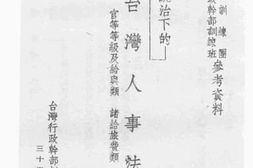 訓練團
政幹部訓練班
參考資料
統治下的
台灣人事法
官等等級及給與類
諸給旅費類
台灣行政幹部
三十